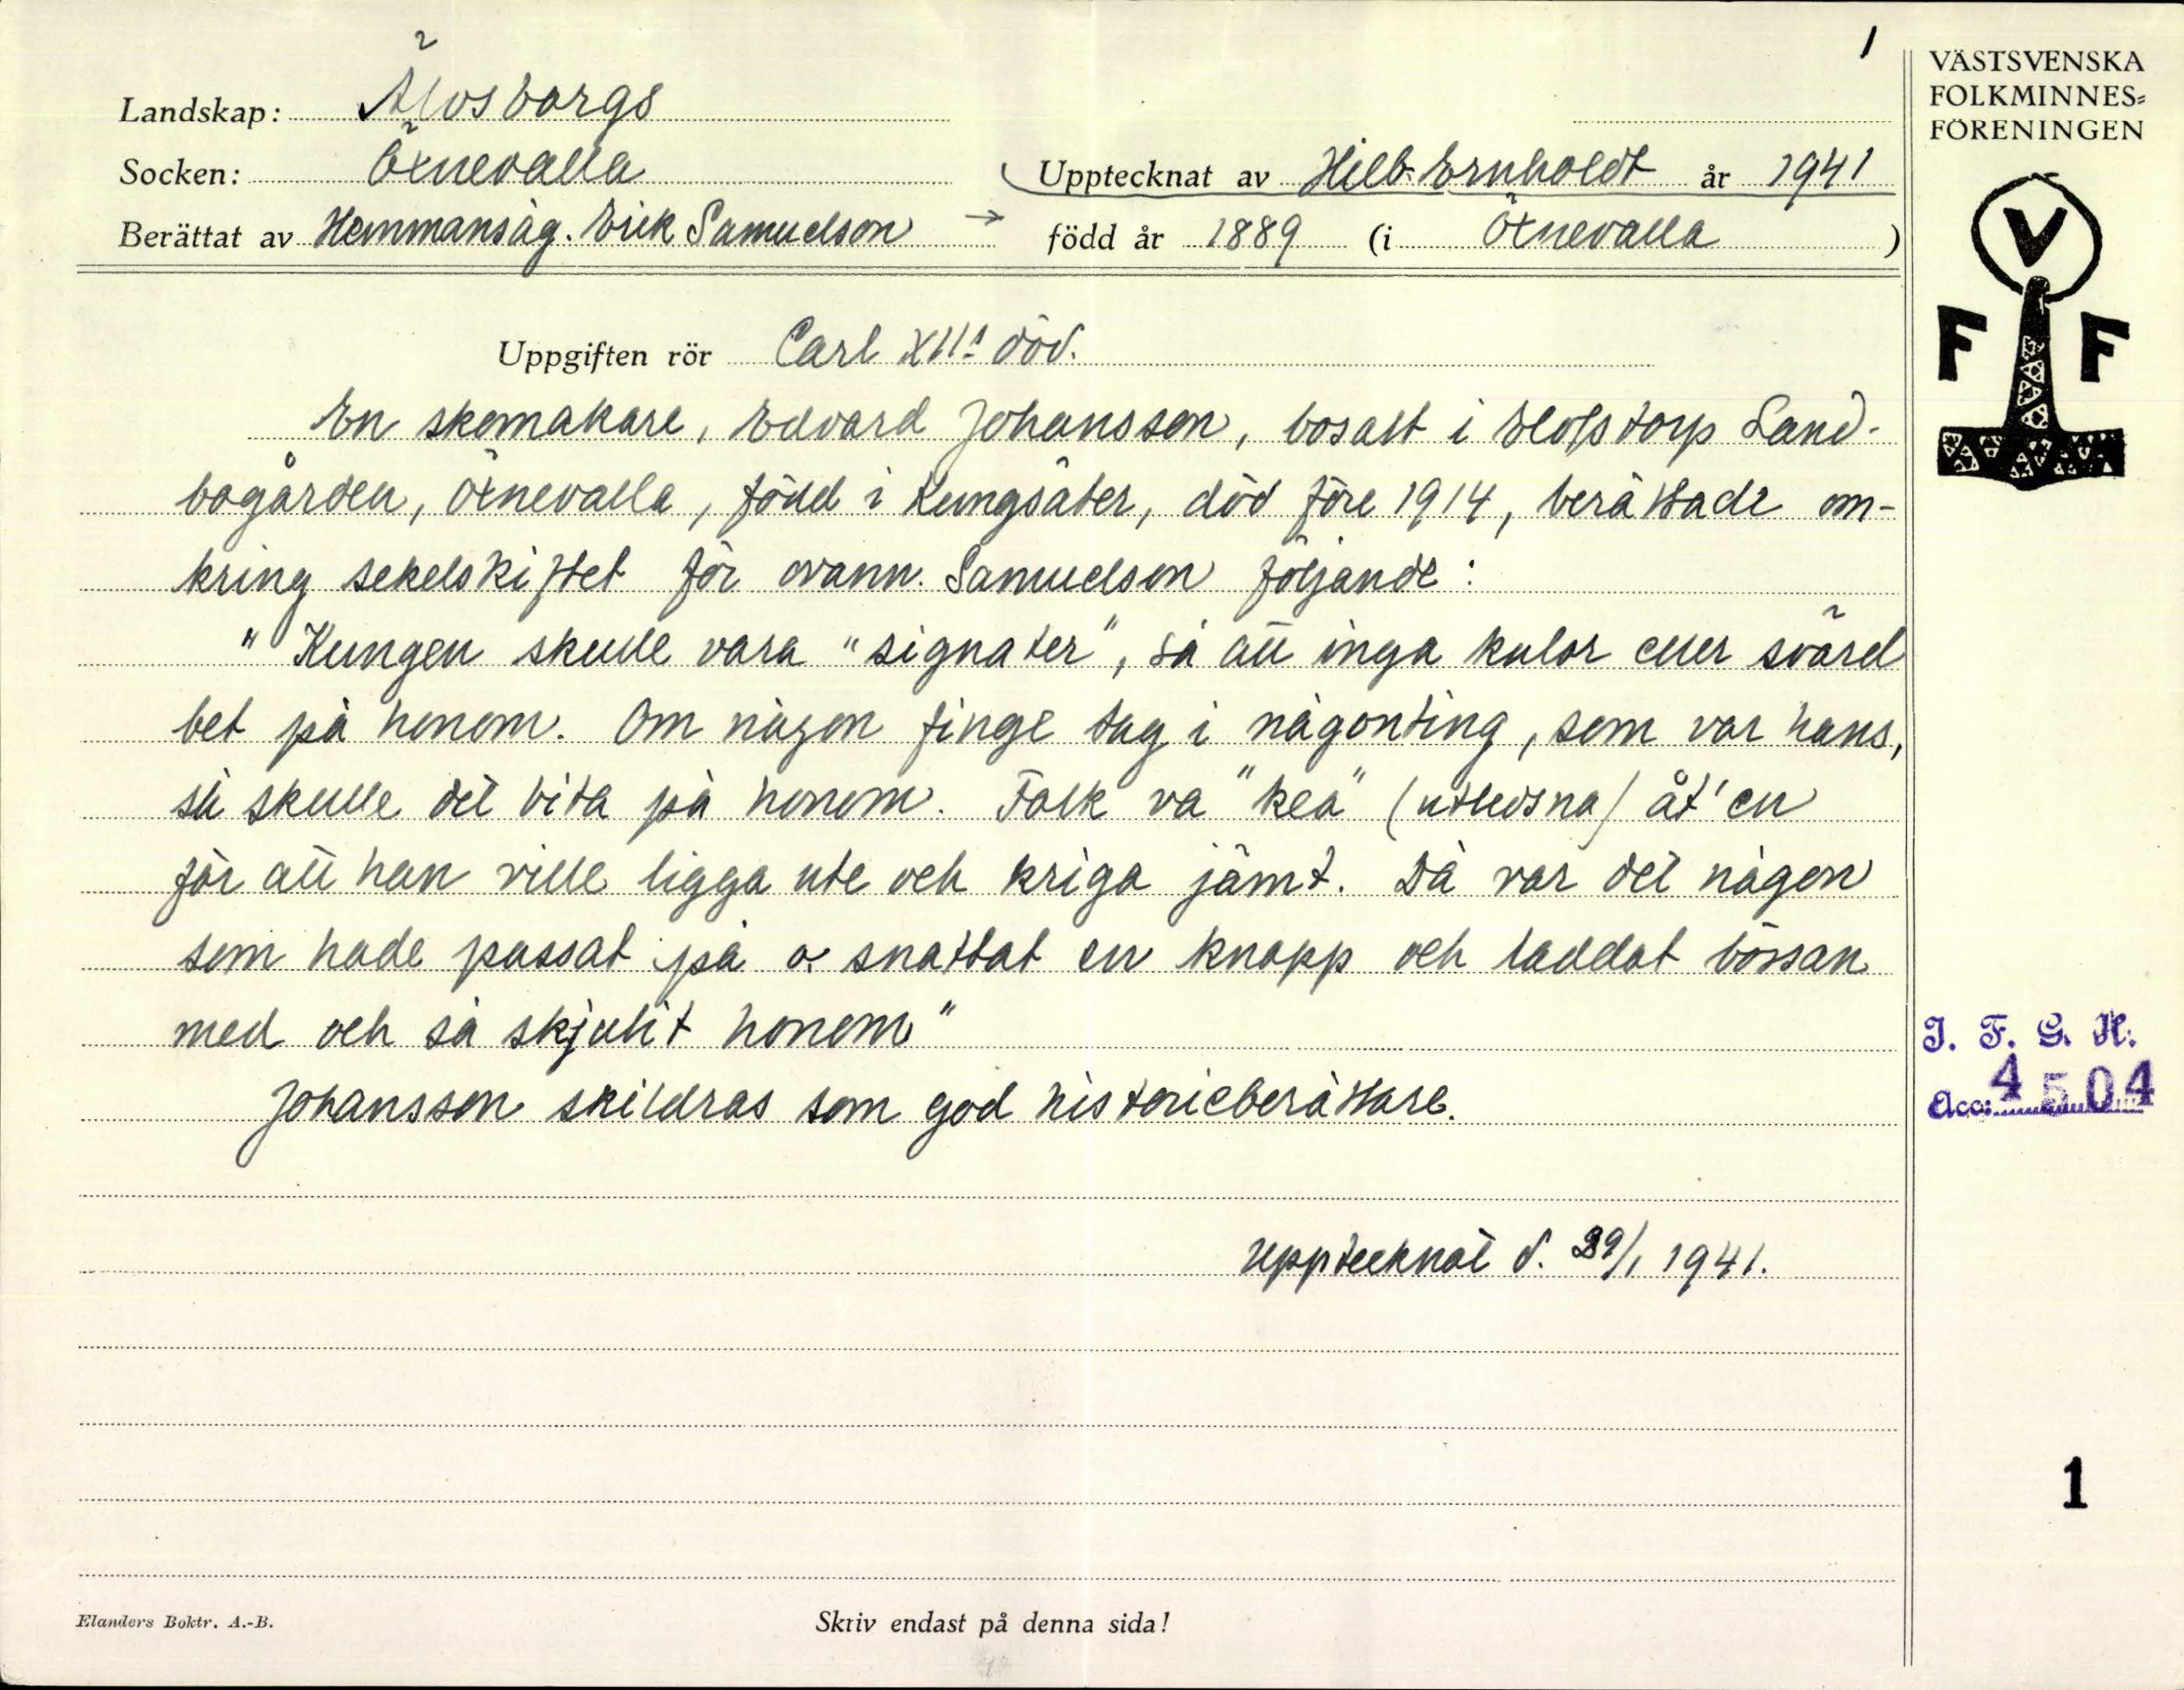 1
VÄSTSVENSKA
FOLKMINNES=
FÖRENINGEN
Landskap: Älvsborgs
Socken: Öxnevalla
Upptecknat av Hilb. Ernholdt år 1941
Berättat av Hemmansäg. Erik Samuelson → född år 1889 (i Öxnevalla )
V
F F
Uppgiften rör Carl XII:s död.
En skomakare, Edvard Johansson, bosatt i Olofstorp Land-
bogården, Öxnevalla, född i Kungsäter, död före 1914, berättade om-
kring sekelskiftet för ovann. Samuelson följande:
"Kungen skulle vara "signater", så att inga kulor eller svärd
bet på honom. Om någon finge tag i någonting, som var hans,
så skulle det bita på honom. Folk va "kea" (utledsna) åt'en
för att han ville ligga ute och kriga jämt. Då var det någon
som hade passat på o. snattat en knapp och laddat bössan
med och så skjutit honom"
Johansson skildras som god historieberättare.
Upptecknat d. 29/1 1941.
I. F. G. H.
Acc: 4504
1
Elanders Boktr. A.-B.
Skriv endast på denna sida!